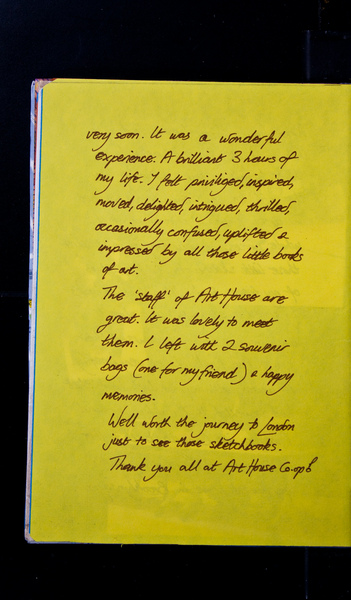 very soon. It was a wonderful
experience. A brilliant 3 hours of
my life. I felt priviliged, inspired,
moved, delighted, intrigued, thrilled,
occasionally confused, uplifted &
impressed by all those little books
of art.
The 'staff' of Art House are
great. It was lovely to meet
them. I left with 2 souvenir
bags (one for my friend) & happy
memories.
Well worth the journey to London
just to see those sketchbooks.
Thank you all at Art House Co-op!